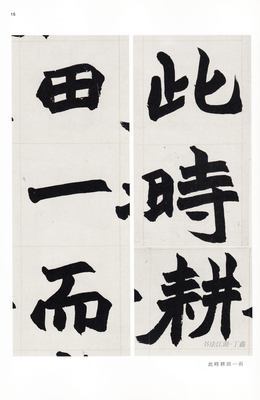 16
此時耕
田一而
书法江湖·丁鑫
此時耕田一而